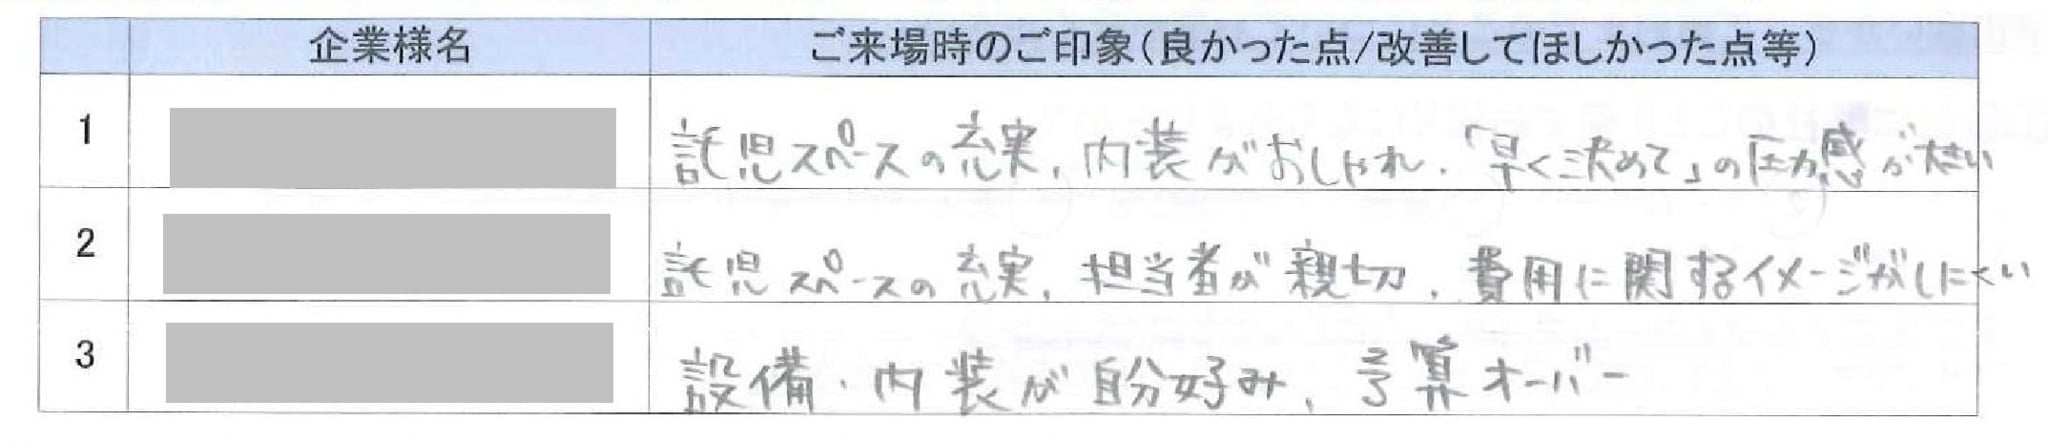 企業様名 ご来場時のご印象(良かった点/改善してほしかった点等)
1 託児スペースの充実、内装がおしゃれ、「早く決めて」の圧力感が大きい
2 託児スペースの充実、担当者が親切、費用に関するイメージがしにくい
3 設備・内装が自分好み、予算オーバー